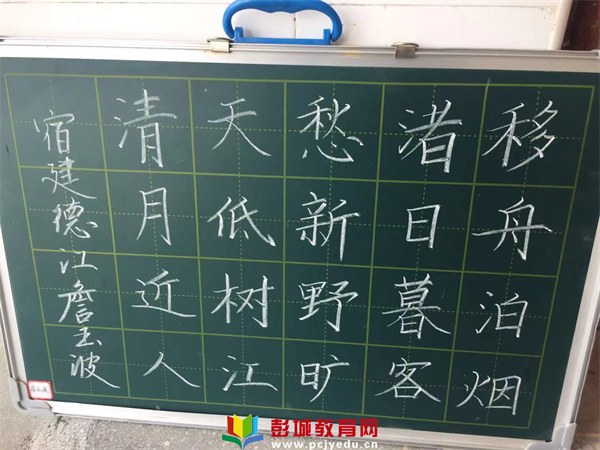 移舟泊烟
渚日暮客
愁新野旷
天低树江
清月近人
宿建德江詹玉波
彭城教育网
www.pcjyedu.cn